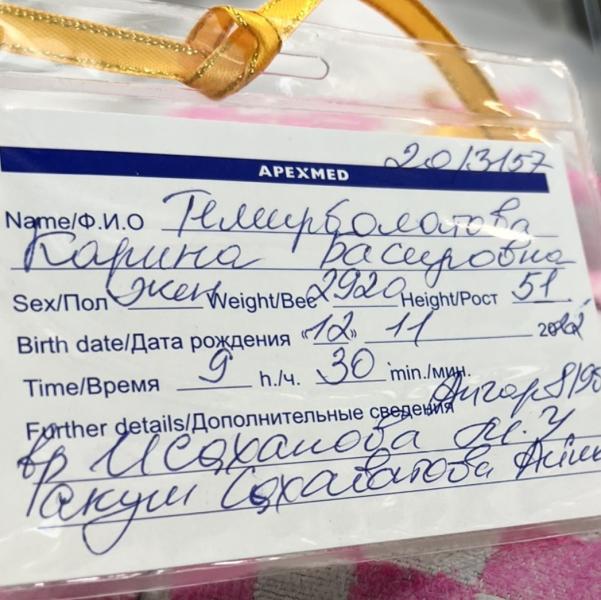 20/3157
APEXMED
Name/Ф.И.О Темирболатова
Карина Басировна
Sex/Пол жен Weight/Вес 2920 Height/Рост 51
Birth date/Дата рождения «12» 11
Time/Время 9 h./ч. 30 min./мин.
Апгар 8/9б
Further details/Дополнительные сведения
вр Исаханова М.У
Такуш Сахаватова